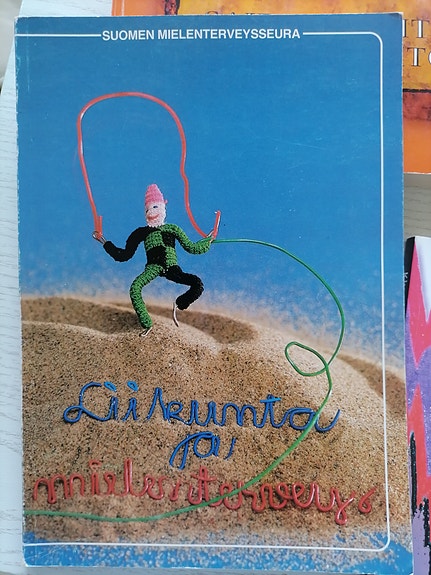 SUOMEN MIELENTERVEYSSEURA
Liikunta
ja
mielenterveys